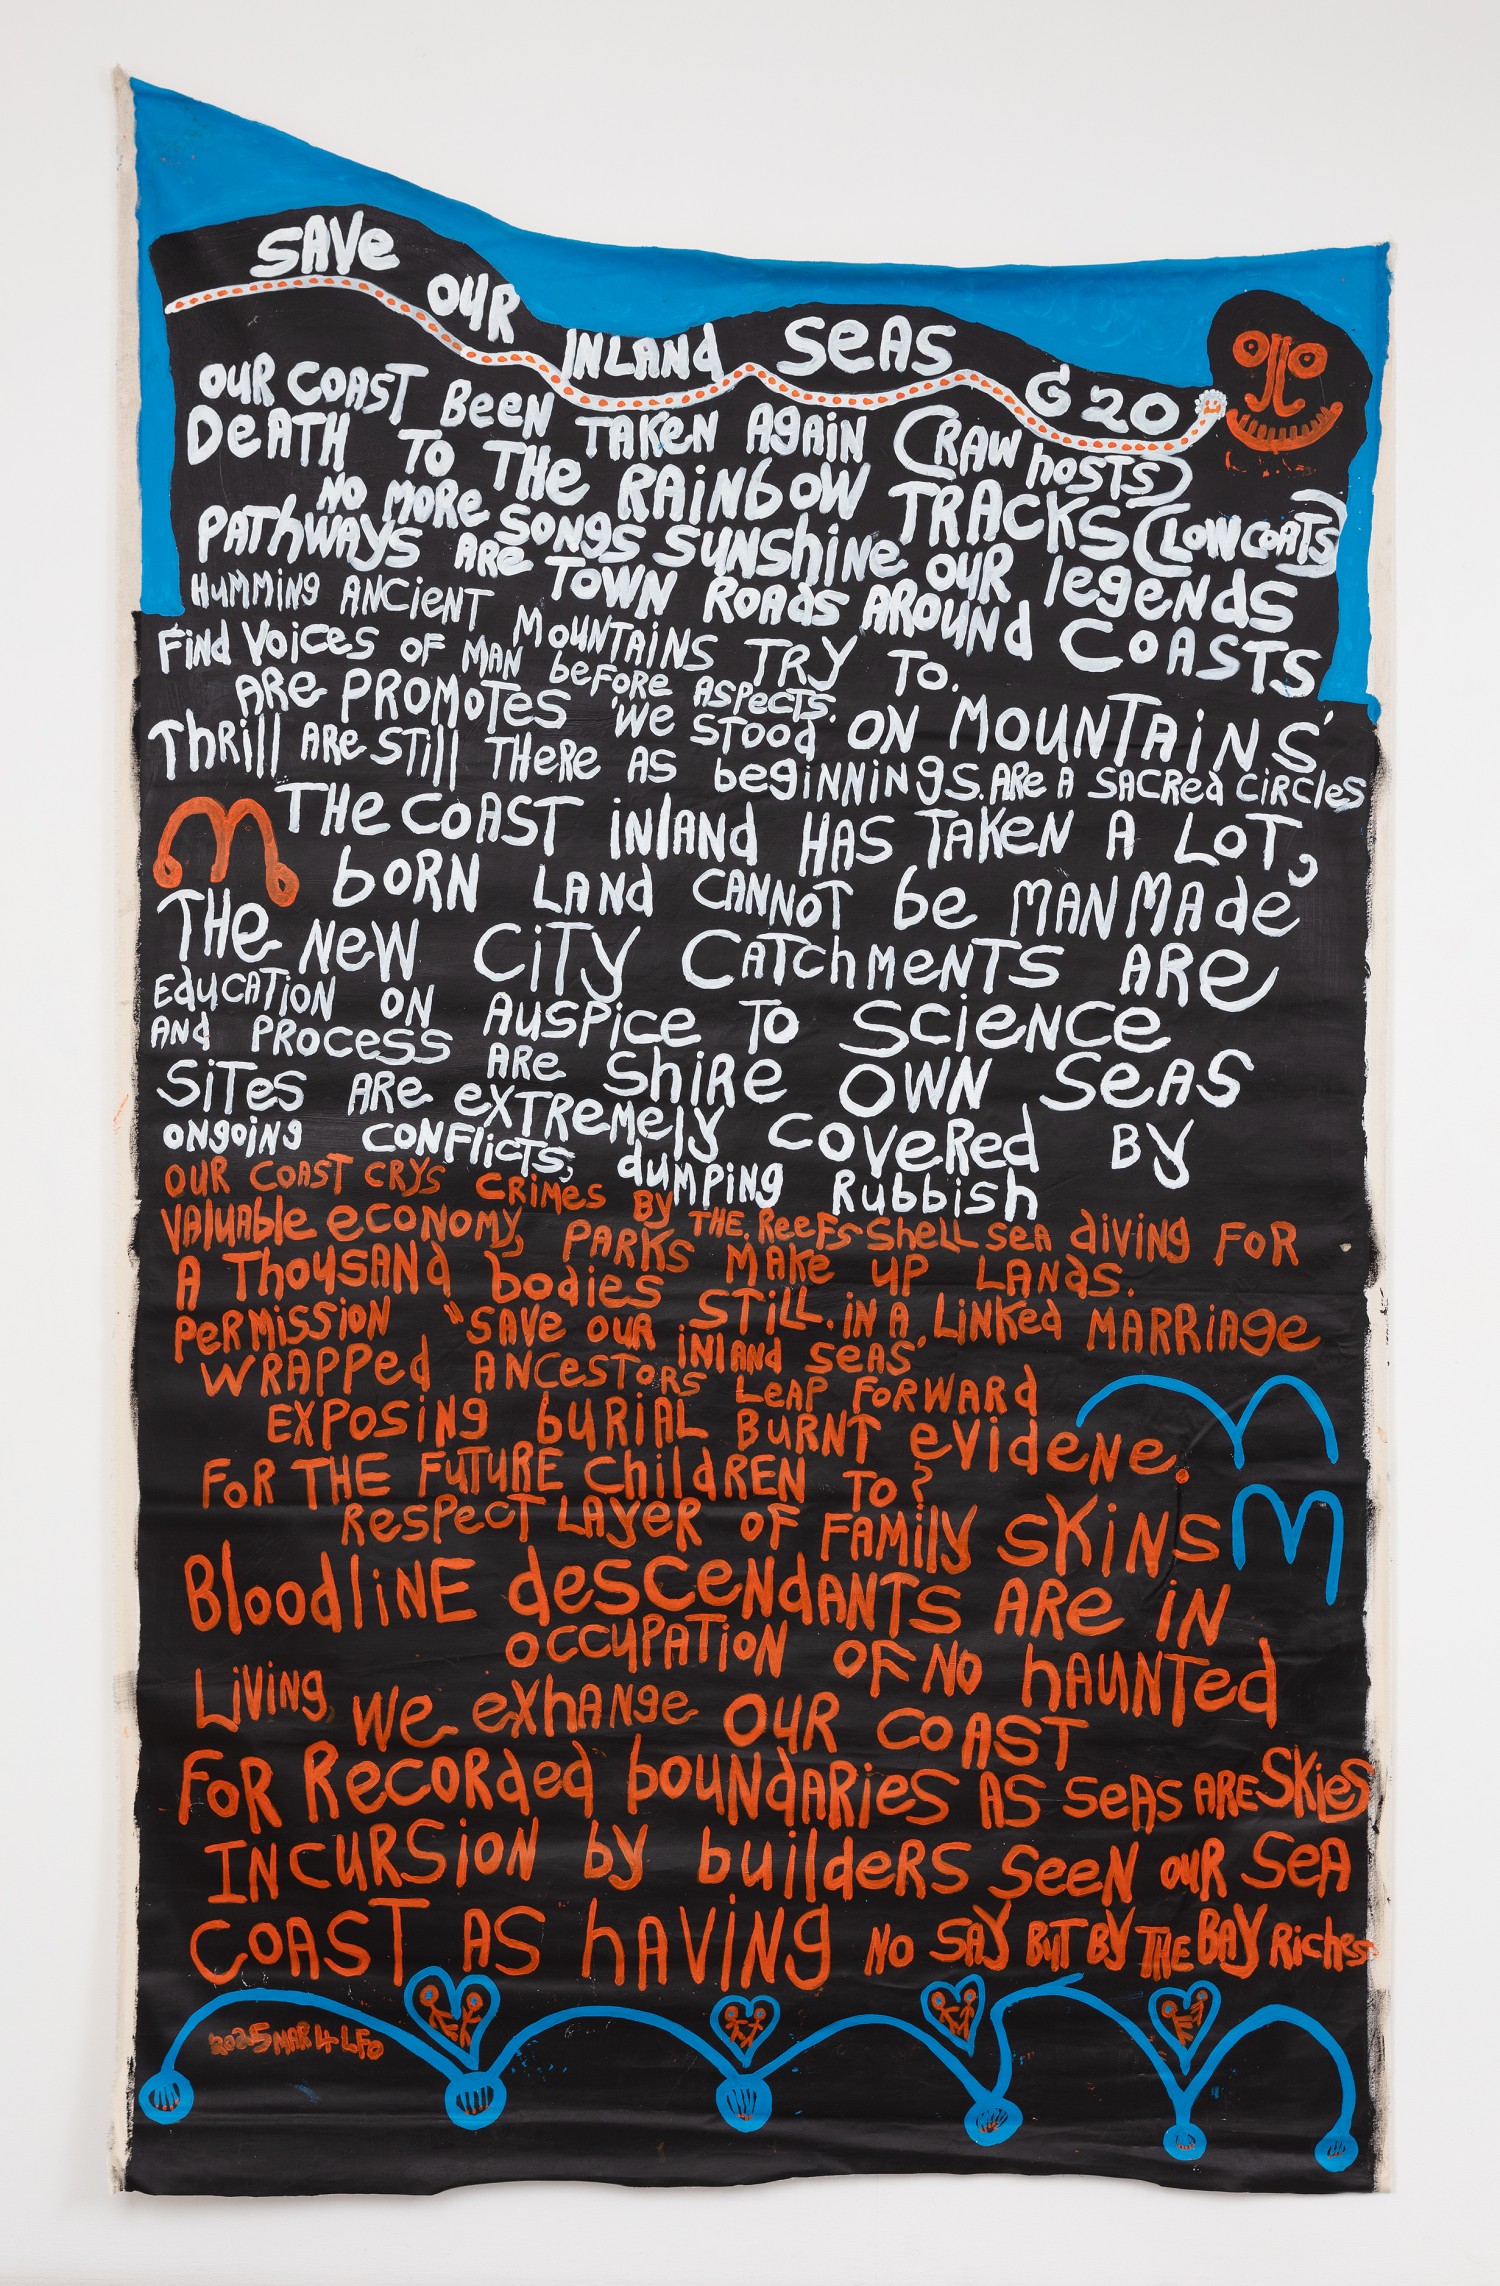 SAVE OUR INLAND SEAS G20
OUR COAST BEEN TAKEN AGAIN (RAW hosTs)
DEATH TO THE RAiNbOW TRACKS (LOWCOATS)
NO MORE SONGS SUNShiNe OUR legeNdS
PAThWAYS ARe TOWN ROAdS AROUNd COASTS
HUMMiNg ANCieNT MOUNTAiNS TRY TO.
FiNd VOiCeS OF MAN beFORe ASPeCTS.
ARe PROMOTeS 'We STOOd ON MOUNTAiNS'
ThRill ARe STill THeRe AS begiNNiNgS. ARe A SACRed CiRCleS
THe COAST iNlANd HAS TAKeN A LOT,
bORN LANd CANNOT be MANMAde
THe NeW CiTY CATChMeNTS ARe
EdUCATiON ON AUSPiCe TO SCieNCe
ANd PROCeSS ARe ShiRe OWN SeAS
SiTeS ARe eXTReMely COVeRed BY
ONgOiNg CONFliCTS, dUMPiNg RUbbiSh
OUR COAST CRYS CRiMeS BY THE. ReeFS-SheLL SeA diViNg FOR
VALUAble eCONOMY, PARKS MAKe UP LANdS.
A ThOUSANd bodieS STiLL. iN A. LiNKed MARRiAge
PeRMiSSiON "SAVe OUR iNlANd SeAS'
WRAPPed ANCeSTORS LeAP FORWARd
EXPOSiNg bURiAL BURNT eVideNe.
FOR THE FUTURE ChildREN TO?
ReSPeCT LAYeR OF FAMilY SKiNS
BloodliNE deSCeNdANTS ARe iN
OCCUPATiON OF NO hAUNTed
LiViNg, We eXhANge OUR COAST
FOR ReCORded bOUNdARieS AS SeAS ARE SKieS
INCURSiON by buildeRS SeeN OUR SeA
COAST AS hAViNg NO SAY BUT BY THE BAY RicheS
2025 MAR 4 LFO